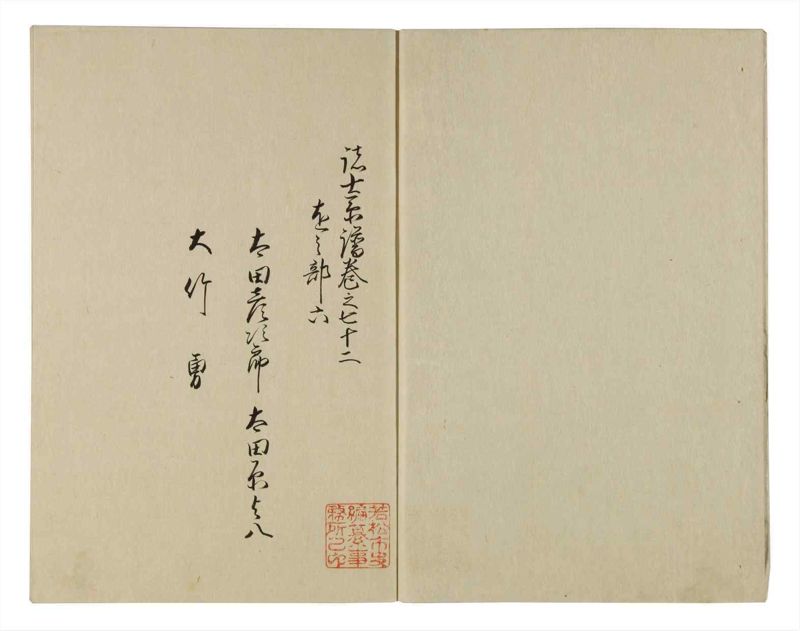 諸士系譜巻之七十二
越之部六
太田彦次郎 太田原与八
大竹 勇
若松市史
編纂事
務所之印